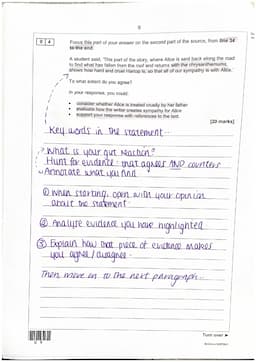 9
0 4
Focus this part of your answer on the second part of the source, from line 34
to the end.
A student said, 'This part of the story, where Alice is sent back along the road
to find what has fallen from the roof and returns with the chrysanthemums,
shows how hard and cruel Hartop is, so that all of our sympathy is with Alice.'
To what extent do you agree?
In your response, you could:
• consider whether Alice is treated cruelly by her father
• evaluate how the writer creates sympathy for Alice
• support your response with references to the text.
[20 marks]
Key words in the statement...
→ What is your gut reaction?
Hunt for evidence that agrees AND counters
→ Annotate what you find
① When starting, open with your opinion
about the statement
② Analyse evidence you have highlighted
③ Explain how that piece of evidence makes
you agree / disagree.
Then move on to the next paragraph...
Turn over ►
0 9